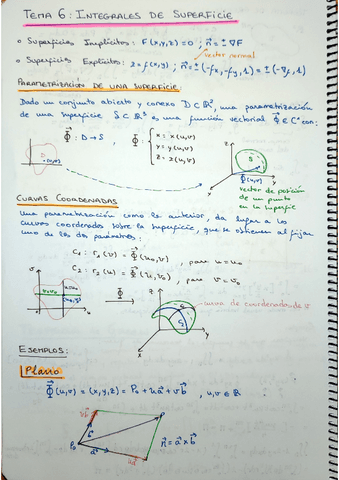 TEMA 6: INTEGRALES DE SUPERFICIE
○ Superficies Implícitas: F(x,y,z)=0 ; n⃗ = ±∇F
vector normal
○ Superficies Explícitas: z=f(x,y) ; n⃗ = ±(-fx,-fy,1) = ±(-∇f,1)
PARAMETRIZACIÓN DE UNA SUPERFICIE
Dado un conjunto abierto y conexo D⊂ℝ², una parametrización
de una superficie S⊂ℝ³ es una función vectorial Φ⃗ ∈ C¹ con:
Φ⃗ : D→S , Φ⃗ : { x = x(u,v)
y = y(u,v)
z = z(u,v)
(u,v)
z
S
Φ⃗(u,v)
x
y
vector de posición
de un punto
en la superficie
CURVAS COORDENADAS
Una parametrización como la anterior, da lugar a las
curvas coordenadas sobre la superficie, que se obtienen al fijar
uno de los dos parámetros:
C₁ : r₁(v) = Φ⃗(u₀,v) , para u=u₀
C₂ : r₂(u) = Φ⃗(u,v₀) , para v=v₀
v
u=u₀
v=v₀
u
Φ⃗
z
S
C₂
x
y
curva de coordenadas v
EJEMPLOS:
Plano
Φ⃗(u,v) = (x,y,z) = P₀ + ua⃗ + vb⃗ , u,v∈ℝ
vb⃗
P
b⃗
P₀
a⃗
ua⃗
n⃗ = a⃗ x b⃗